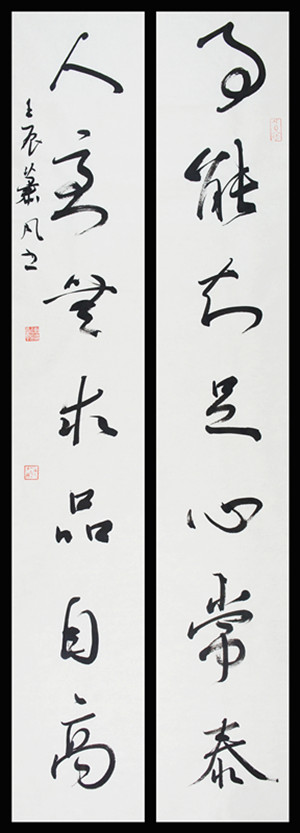 事能知足心常泰
人無求品自高
壬辰凡书